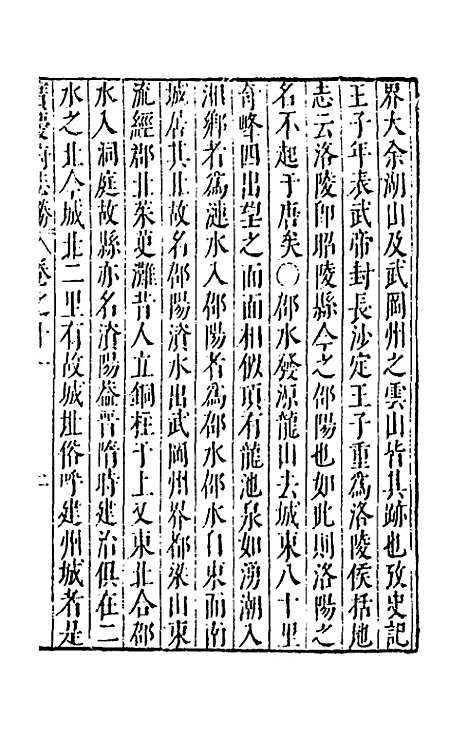 界大余湖山及武岡州之雲山皆其跡也攷史記
王子年表武帝封長沙定王子重爲洛陵侯括地
志云洛陵卽昭陵縣今之邵陽也如此則洛陽之
名不起于唐矣〇邵水發源龍山去城東八十里
奇峰四出望之面面相似頂有龍池泉如湧潮入
湘鄉者爲漣水入邵陽者爲邵水邵水自東而南
城居其北故名邵陽濱水出武岡州界都梁山東
流經郡北茱萸灘昔人立銅柱于上又東北合邵
水入洞庭故縣亦名濱陽葢晉隋時建治俱在二
水之北今城北二里有故城址俗呼建州城者是
寶慶府志勝 卷之十一 二